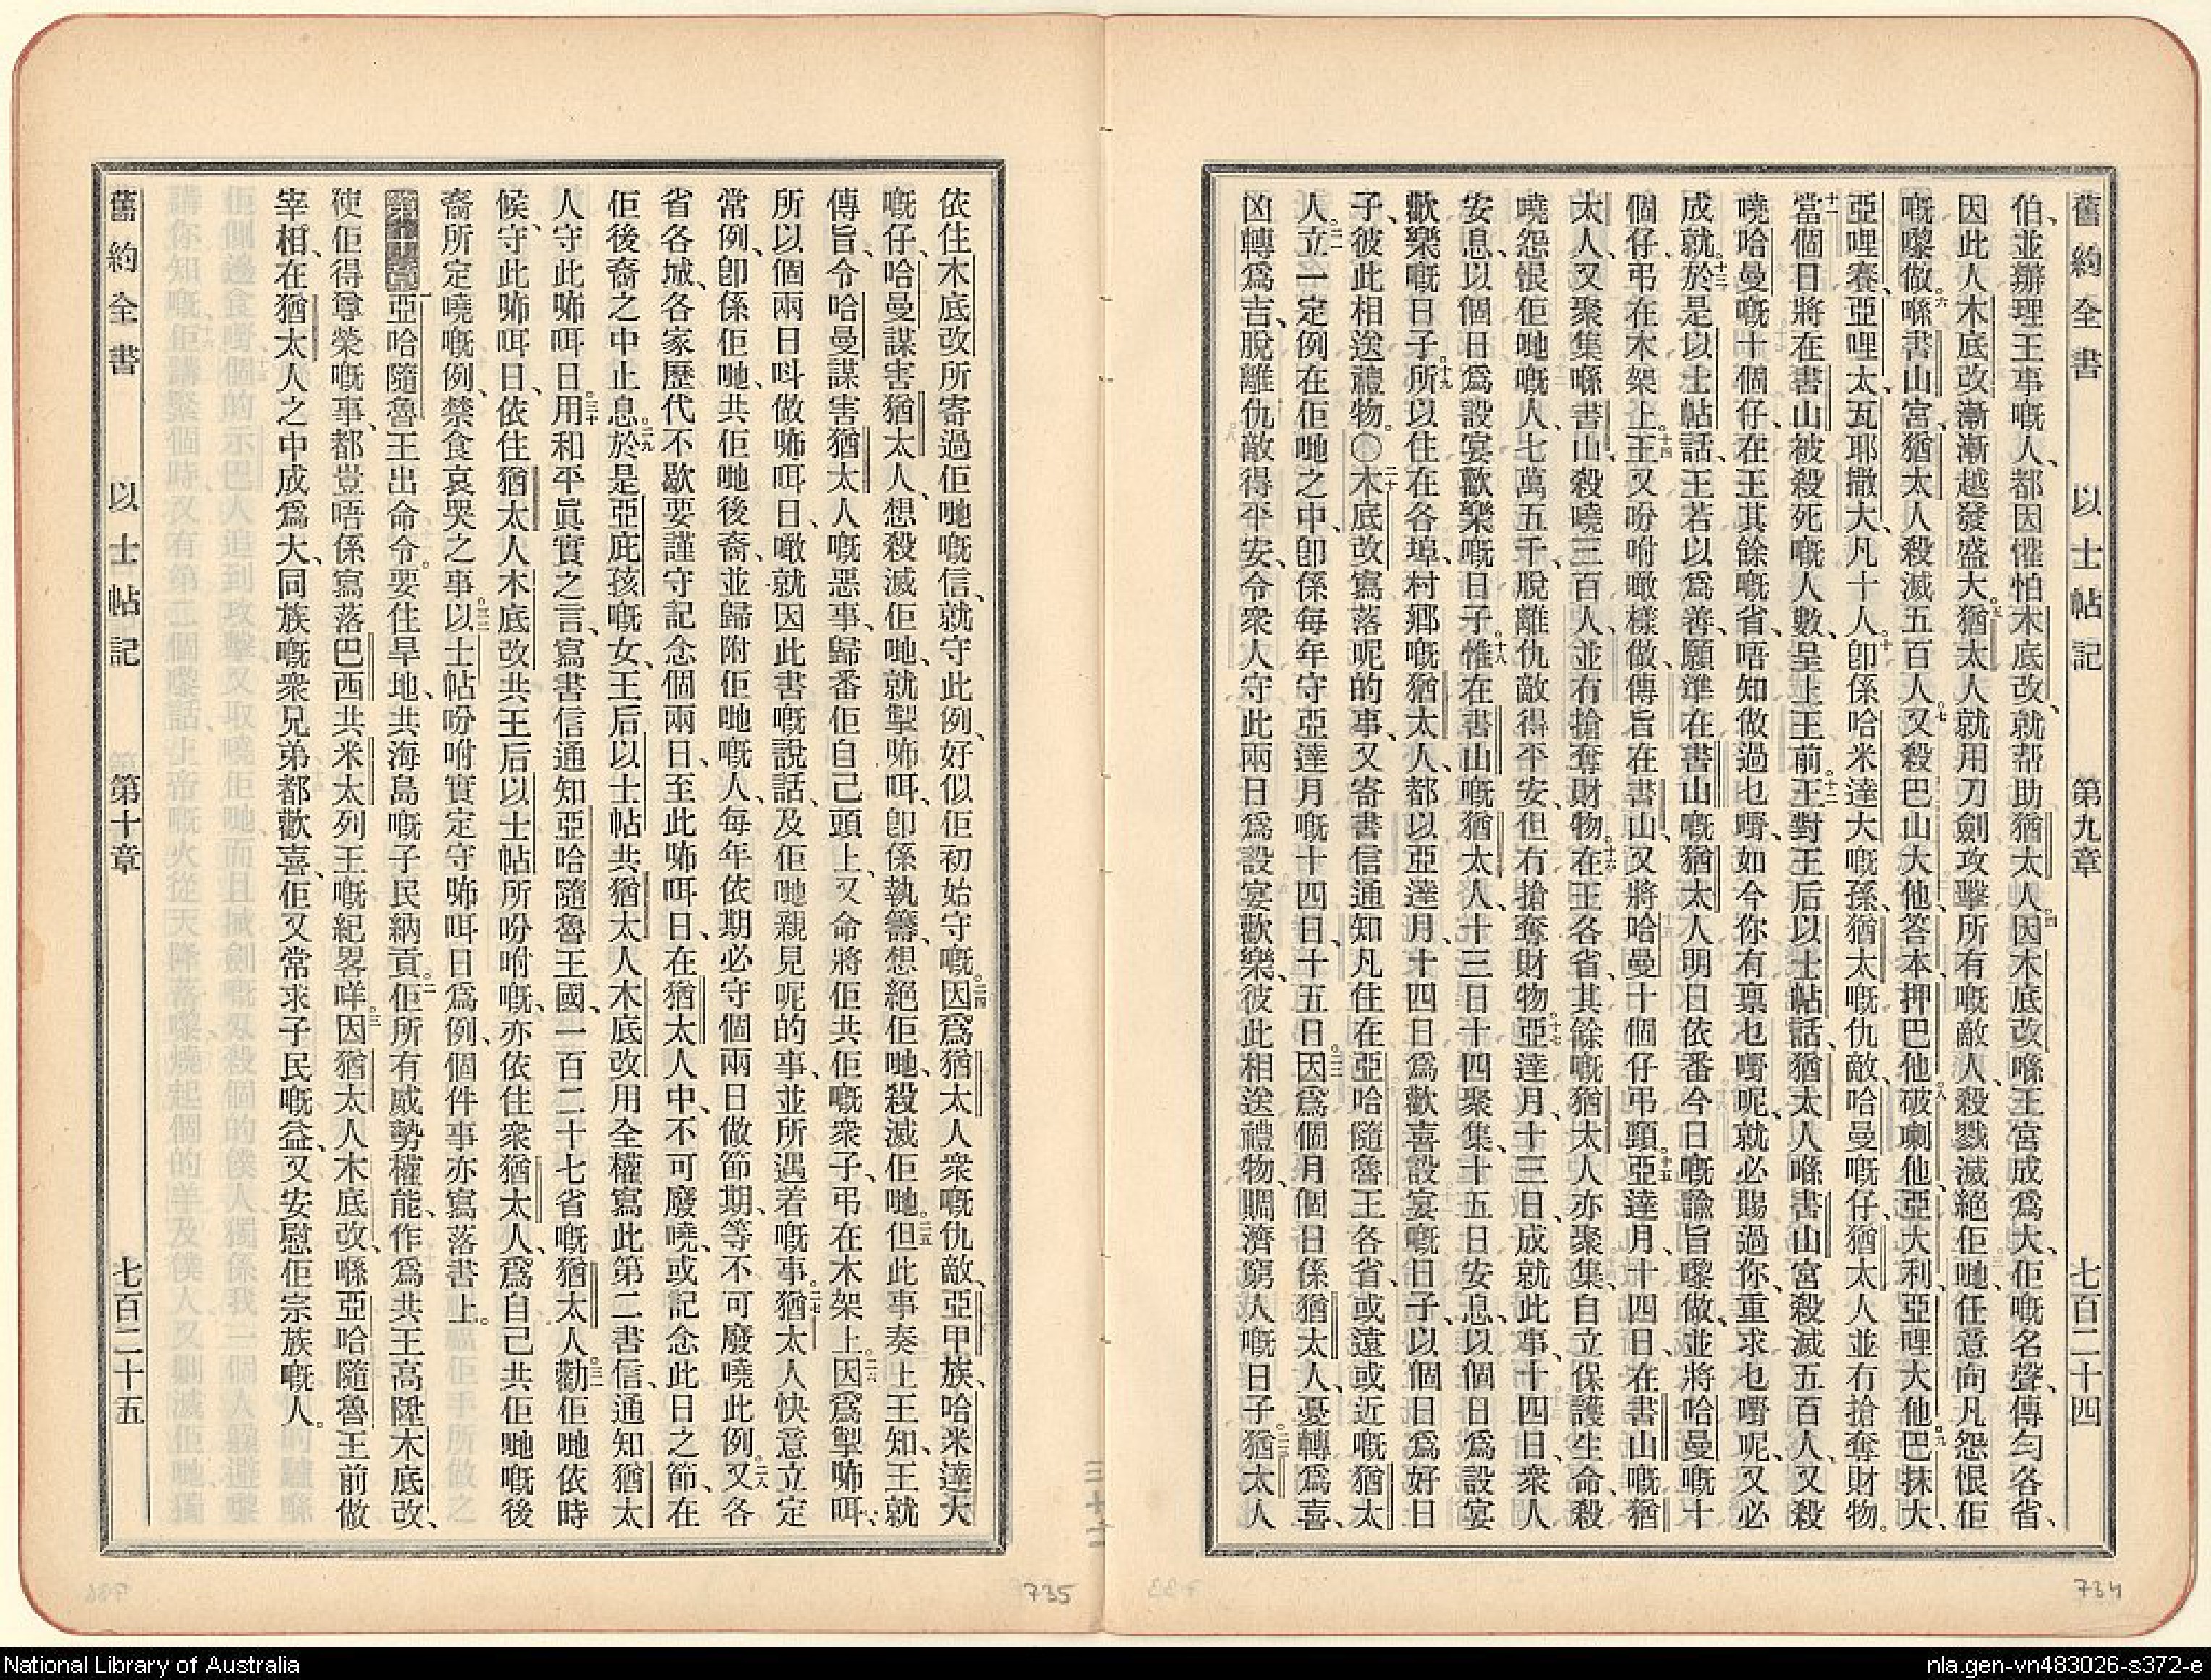 舊約全書　以士帖記　第九章　七百二十四
伯、並辦理王事嘅人、都因懼怕木底改、就帮助猶太人。四因木底改喺王宮成爲大、佢嘅名聲、傳勻各省、
因此人木底改漸漸越發盛大。五猶太人就用刀劍攻擊所有嘅敵人、殺戮滅絕佢哋、任意向凡怨恨佢
嘅嚟做。六喺書山宮、猶太人殺滅五百人。七又殺巴山大他、答本、押巴他、八破喇他、亞大利、亞哩大他、九巴抹大、
亞哩賽、亞哩太、瓦耶撒大、凡十人。十卽係哈米達大嘅孫、猶太嘅仇敵、哈曼嘅仔、猶太人並冇搶奪財物。
十一當個日將在書山被殺死嘅人數、呈上王前。十二王對王后以士帖話、猶太人喺書山宮殺滅五百人、又殺
曉哈曼嘅十個仔、在王其餘嘅省、唔知做過乜嘢、如今你有禀乜嘢呢、就必賜過你、重求乜嘢呢、又必
成就。十三於是以士帖話、王若以爲善、願準在書山嘅猶太人明日依番今日嘅諭旨嚟做、並將哈曼嘅十
個仔、弔在木架上。十四王又吩咐噉樣做、傳旨在書山、又將哈曼十個仔弔頸。十五亞達月、十四日、在書山嘅猶
太人、又聚集喺書山、殺曉三百人、並冇搶奪財物。十六在王各省、其餘嘅猶太人亦聚集、自立保護生命、殺
曉怨恨佢哋嘅人、七萬五千、脫離仇敵得平安、但冇搶奪財物。十七亞達月、十三日、成就此事、十四日、衆人
安息、以個日爲設宴歡樂嘅日子。十八惟在書山嘅猶太人、十三日十四聚集、十五日安息、以個日爲設宴
歡樂嘅日子。十九所以住在各埠、村鄉嘅猶太人、都以亞達月、十四日爲歡喜設宴嘅日子、以個日爲好日
子、彼此相送禮物。〇二十木底改寫落呢的事、又寄書信通知凡住在亞哈隨魯王各省、或遠或近嘅猶太
人。二一立一定例在佢哋之中、卽係每年守亞達月嘅十四日、十五日。二二因爲個月個日係猶太人、憂轉爲喜、
凶轉爲吉、脫離仇敵得平安、令衆人守此兩日爲設宴歡樂、彼此相送禮物、賙濟窮人嘅日子。二三猶太人
依住木底改所寄過佢哋嘅信、就守此例、好似佢初始守嘅。二四因爲猶太人衆嘅仇敵、亞甲族、哈米達大
嘅仔、哈曼謀害猶太人、想殺滅佢哋、就掣㖊咡、卽係執籌、想絕佢哋、殺滅佢哋。二五但此事奏上王知、王就
傳旨、令哈曼謀害猶太人嘅惡事、歸番佢自己頭上、又命將佢共佢嘅衆子、弔在木架上。二六因爲掣㖊咡、
所以個兩日呌做㖊咡日、噉就因此書嘅說話、及佢哋親見呢的事、並所遇着嘅事。二七猶太人快意立定
常例、卽係佢哋、共佢哋後裔、並歸附佢哋嘅人、每年依期必守個兩日做節期、等不可廢曉此例。二八又各
省各城、各家歷代不歇要謹守記念個兩日、至此㖊咡日、在猶太人中、不可廢曉、或記念此日之節、在
佢後裔之中止息。二九於是亞庇孩嘅女、王后以士帖共猶太人木底改用全權寫此第二書信、通知猶太
人守此㖊咡日。三十用和平眞實之言、寫書信通知亞哈隨魯王國、一百二十七省嘅猶太人。三一勸佢哋依時
候、守此㖊咡日、依住猶太人木底改共王后以士帖所吩咐嘅、亦依住衆猶太人、爲自己共佢哋嘅後
裔所定曉嘅例、禁食哀哭之事。三二以士帖吩咐實定守㖊咡日爲例、個件事亦寫落書上。
第十章一亞哈隨魯王出命令。要住旱地、共海島嘅子民納貢。二佢所有威勢權能、作爲共王高陞木底改、
使佢得尊榮嘅事、都豈唔係寫落巴西共米太列王嘅紀畧咩。三因猶太人木底改、喺亞哈隨魯王前做
宰相、在猶太人之中成爲大、同族嘅衆兄弟都歡喜、佢又常求子民嘅益、又安慰佢宗族嘅人。
舊約全書　以士帖記　第十章　七百二十五
734
735
National Library of Australia
nla.gen-vn483026-s372-e